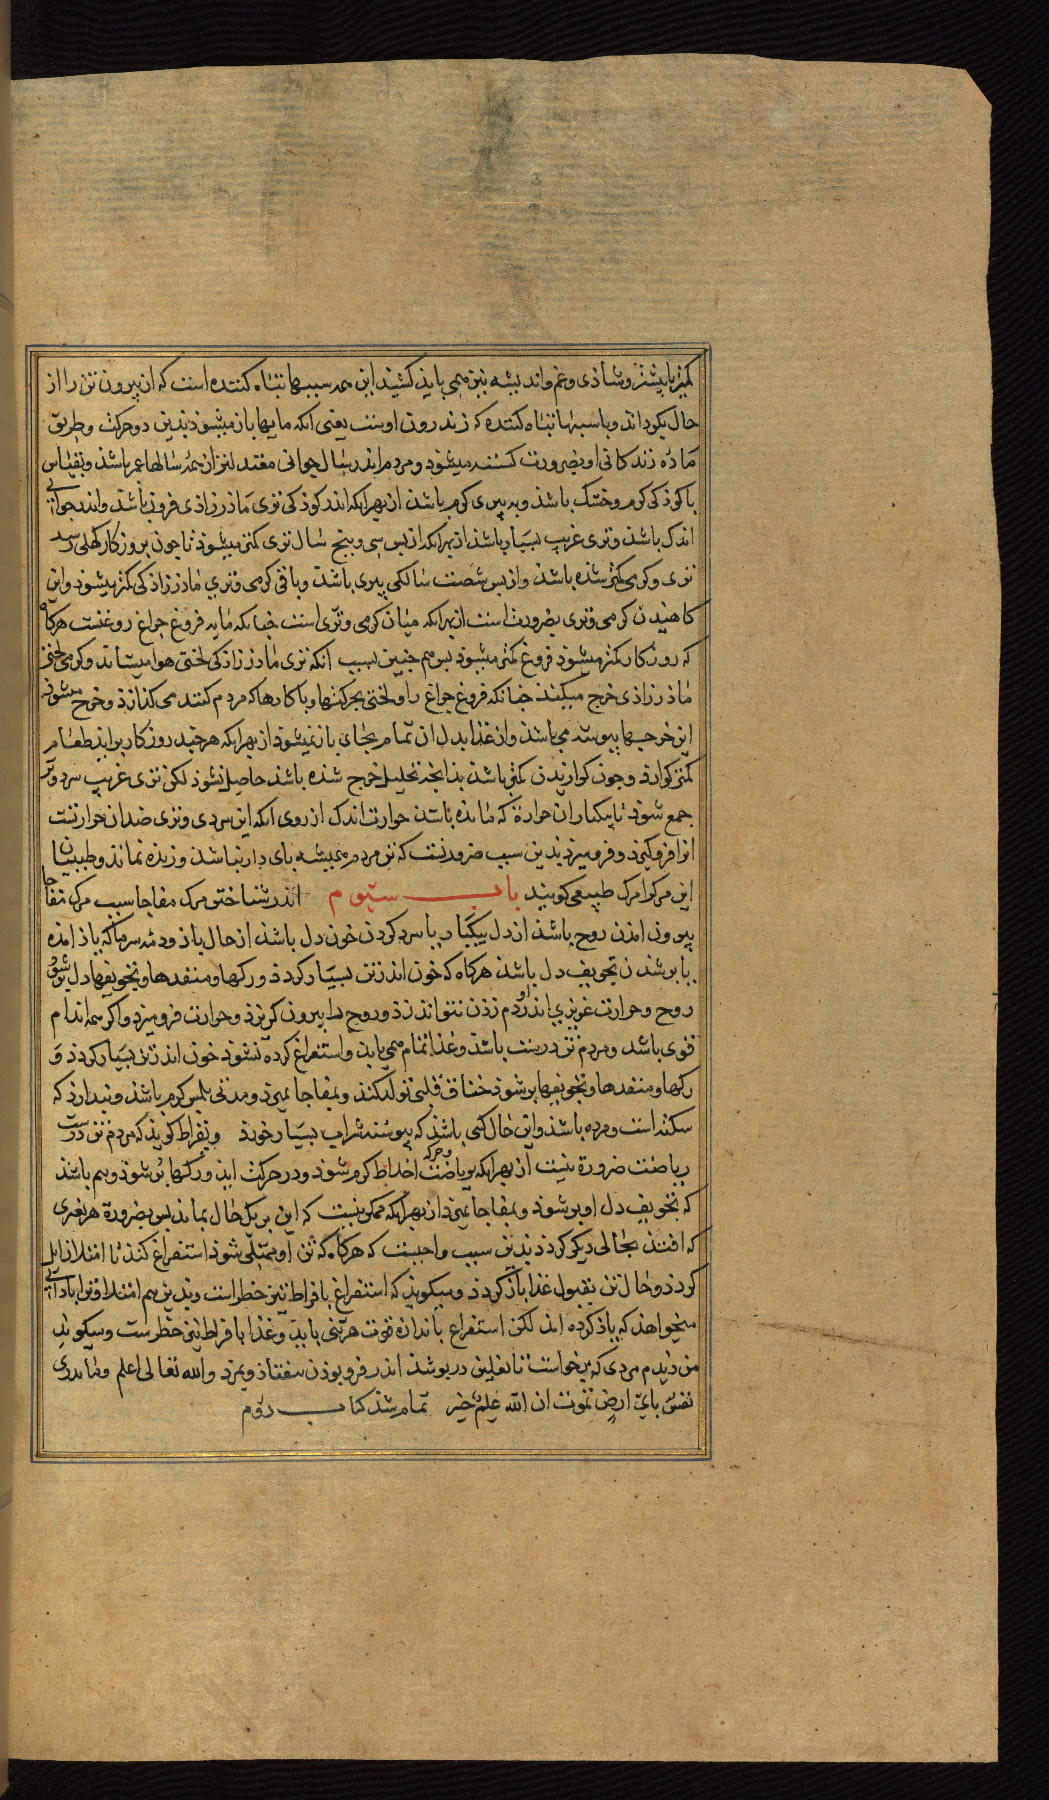 کمتر یا بیشتر و شاذی و غم و اندیشه نیز همی باید کشید این همه سببها تباه کننده است که از بیرون تن را از
حال بگرداند و با سببها تباه کننده که ز اندرون اوست یعنی آنکه مایها باز میشوذ بدین دو حرکت و طریق
ماده زندکانی او بضرورت کسسته میشوذ و مردم اندر سال جوانی معتدل‌تر از همه سالها عمر باشذ و بقیاس
با کوذکی کرم و خشک باشذ و به پیری کرم باشذ از بهر آنکه اندر کوذکی تری ماذرزاذی فزون باشذ و اندر جوانی
اندک باشذ و تری غریب بسیار باشذ از بهر آنکه از پس سی و پنج سال تری کمتر میشوذ تا چون بروزکار کهلی رسد
تری و کرمی کمتر شده باشذ و از پس شصت سالکی پیری باشذ و باقی کرمی و تری ماذرزاذکی کمتر میشوذ و این
کاهیدن کرمی و تری بضرورت است از بهر آنکه میان کرمی و تری است چنانکه مایه فروغ چراغ روغنست هرکاه
که روزکار کمتر میشوذ فروغ کمتر میشوذ پس هم چنین بسبب آنکه تری ماذرزاذکی لختی هوا میستاند و کرمی لختی
ماذرزاذی خرج میکند چنانکه فروغ چراغ را و لختی بحرکتها و با کارها که مردم کنند می کذازذ و خرج میشوذ
این خرجها پیوسته می باشذ و از غذا بدل آن تمام بجای باز نمیشوذ از بهر آنکه هرچند روزکار برآید طعام
کمتر کوارذ و چون کواریدن کمتر باشذ بدانچه تحلیل خرج شده باشذ حاصل نشوذ لکن تری غریب سرد و تر
جمع شوذ تا یکبار آن حرارة که مانده باشذ حرارت اندک از روی آنکه این سردی و تری ضد آن حرارتست
آنرا فرو کیرد و فرو میرد بدین سبب ضرورتست که تن مردم همیشه پای دار نباشذ و زنده نماند و طبیبان
این مرک را مرک طبیعی کویند باب سیوم اندر شناختن مرک مفاجا سبب مرک مفاجا
بیرون آمدن روح باشذ از دل بیکبار یا سرد کردن خون دل باشذ از حال یاذ و دمه سرما که یاذ آمده
یا پر شدن تجویف دل باشذ هرکاه که خون اندر تن بسیار کردذ و رکها و منفذها و تجویفها دل پر شوذ
روح و حرارت غریزی اندر او دم زدن نتواند زذ و روح را بیرون کریزذ و حرارت فرو میرد و اکر همه اندام
قوی باشد و مردم تن درست باشذ و غذا تمام همی یابد و استفراغ کرده نشوذ خون اندر تن بسیار کردذ و
رکها و منفذها و تجویفها پر شوذ خناق قلبی تولد کند و بمفاجا بمیرد و مدتی بلمس کرم باشذ و پندارذ که
سکته است و مرده باشذ و این حال کسی باشذ که پیوسته شراب بسیار خورذ و بقراط کویذ که مردم تن درست
ریاضت ضرورة نیست از بهر آنکه بریاضت و حرکه اخلاط کرم شوذ و در حرکت آید و رکها پر شوذ و بیم باشذ
که تجویف دل او پر شوذ و بمفاجا بمیرد از بهر آنکه ممکن نیست که این بر یک حال بماند پس بضرورة هر تغیری
که افتذ بحالی دیکر کردذ بدین سبب واجبست که هرکاه که تن او ممتلی شوذ استفراغ کنذ تا امتلا زایل
کردذ و حال تن بقبول غذا باز کردذ و میکوید که استفراغ بافراط نیز خطر است و بدین هم امتلا و قوا باذ آنی
میخواهذ که یاذ کرده اند لکن استفراغ باندازه قوت هر تنی باید و غذا بافراط نیز خطرست و میکوید
من دیدم مردی که برخواست تا نعلین در پوشذ اندر فرو بوذن بیفتاذ و بمرد والله تعالی اعلم و ما تدری
نفس بای ارض تموت ان الله علیم خبیر تمام شذ کتاب دوم